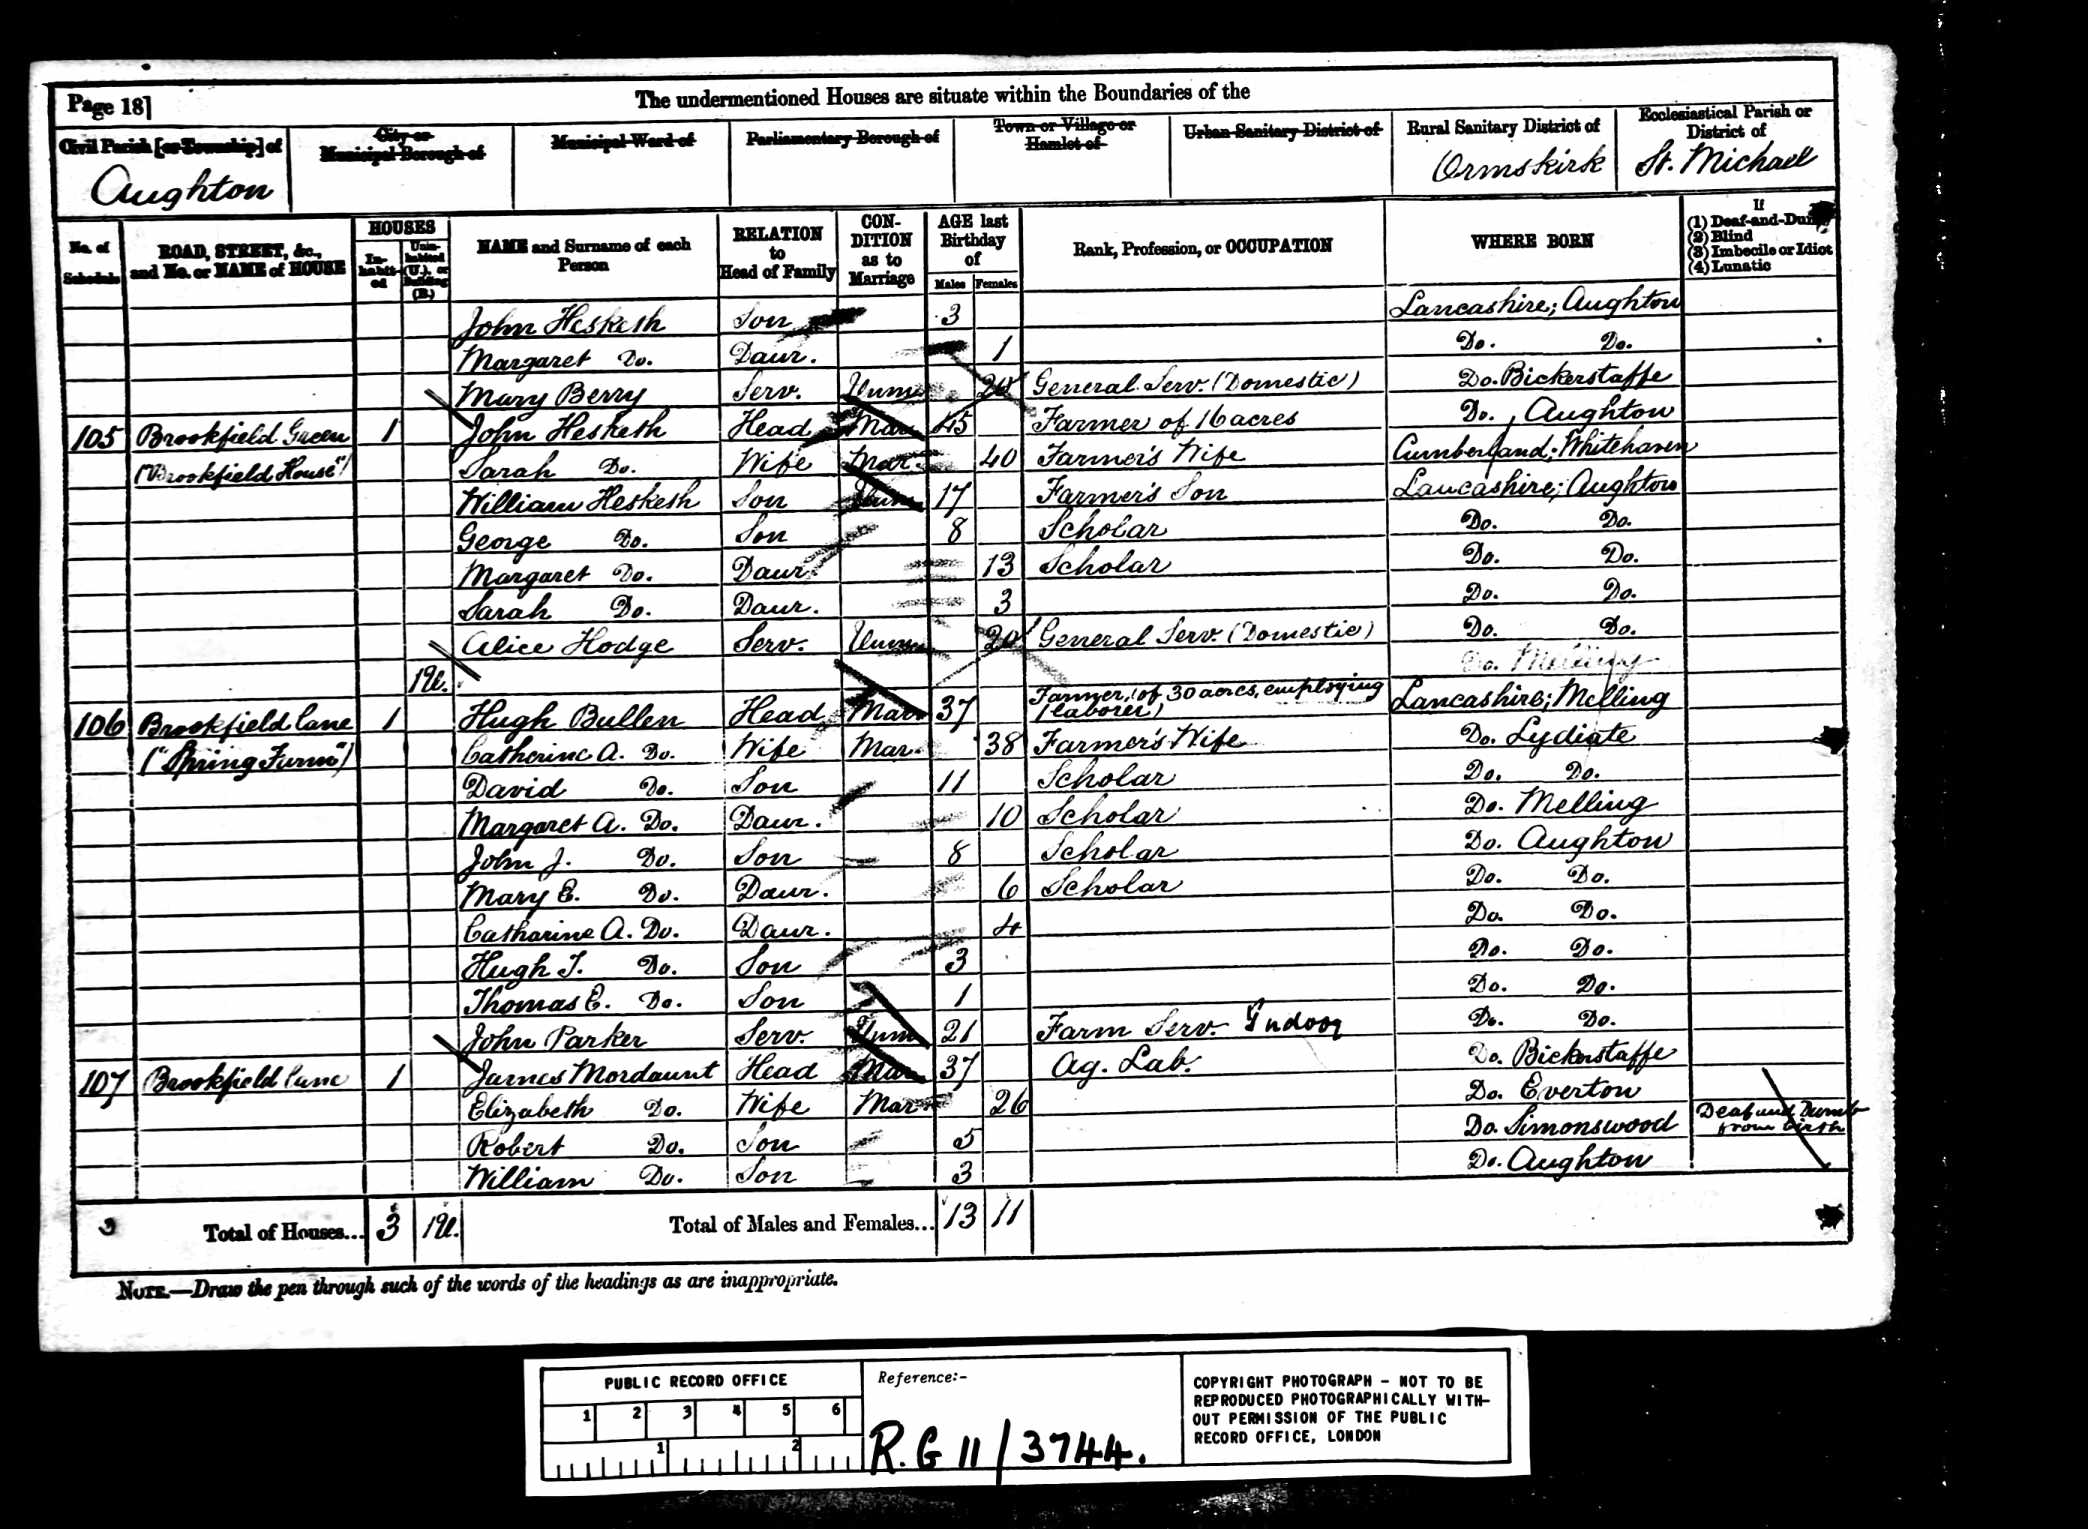 Page 18]
The undermentioned Houses are situate within the Boundaries of the
Civil Parish [or Township] of
City or Municipal Borough of
Municipal Ward of
Parliamentary Borough of
Town or Village or Hamlet of
Urban Sanitary District of
Rural Sanitary District of
Ecclesiastical Parish or District of
Aughton
Ormskirk
St. Michael
No. of Schedule
ROAD, STREET, &c., and No. or NAME of HOUSE
HOUSES
In-habit-ed
Unin-habited (U.), or Building (B.)
NAME and Surname of each Person
RELATION to Head of Family
CON-DITION as to Marriage
AGE last Birthday of
Males
Females
Rank, Profession, or OCCUPATION
WHERE BORN
If
(1) Deaf-and-Dumb
(2) Blind
(3) Imbecile or Idiot
(4) Lunatic
John Hesketh Son 3 Lancashire; Aughton
Margaret Do. Daur. 1 Do. Do.
Mary Berry Serv. Unm. General Serv. (Domestic) Do. Bickerstaffe
105 Brookfield Green 1 John Hesketh Head Mar. 45 Farmer of 16 acres Do. Aughton
("Brookfield House") Sarah Do. Wife Mar. 40 Farmer's Wife Cumberland; Whitehaven
William Hesketh Son Unm. 17 Farmer's Son Lancashire; Aughton
George Do. Son 8 Scholar Do. Do.
Margaret Do. Daur. 13 Scholar Do. Do.
Sarah Do. Daur. 3 Do. Do.
Alice Hodge Serv. Unm. 20 General Serv. (Domestic) Do. Do.
1U. Do. Melling
106 Brookfield Lane 1 Hugh Bullen Head Mar. 37 Farmer, (of 30 acres, employing 1 laborer) Lancashire; Melling
("Spring Farm") Catherine A. Do. Wife Mar. 38 Farmer's Wife Do. Lydiate
David Do. Son 11 Scholar Do. Do.
Margaret A. Do. Daur. 10 Scholar Do. Melling
John J. Do. Son 8 Scholar Do. Aughton
Mary E. Do. Daur. 6 Scholar Do. Do.
Catharine A. Do. Daur. 4 Do. Do.
Hugh J. Do. Son 3 Do. Do.
Thomas E. Do. Son 1 Do. Do.
John Parker Serv. Unm. 21 Farm Serv. Indoor Do. Do.
107 Brookfield Lane 1 James Mordaunt Head Mar. 37 Ag. Lab. Do. Bickerstaffe
Elizabeth Do. Wife Mar. 26 Do. Everton
Robert Do. Son 5 Do. Simonswood Deaf and Dumb from birth
William Do. Son 3 Do. Aughton
3 Total of Houses... 3 1U. Total of Males and Females... 13 11
NOTE.—Draw the pen through such of the words of the headings as are inappropriate.
PUBLIC RECORD OFFICE
1 2 3 4 5 6
1 2
Reference:-
R.G 11/3744.
COPYRIGHT PHOTOGRAPH - NOT TO BE
REPRODUCED PHOTOGRAPHICALLY WITH-
OUT PERMISSION OF THE PUBLIC
RECORD OFFICE, LONDON